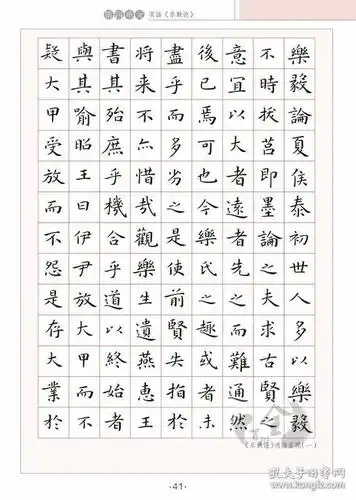 实临《乐毅论》
樂毅論夏侯泰初世人多以樂毅
不時拔莒即墨論之夫求古賢之
意宜以大者遠者先之而難通然
後已焉可也今樂氏之趣或者未
盡乎而多劣之是使前賢失指於
將來不亦惜哉觀樂生遺燕惠王
書其殆庶乎機合乎道以終始者
與其喻昭王曰伊尹放大甲而不
疑大甲受放而不怨是存大業於
《乐毅论》通临呈现(一)
·41·
孔夫子旧书网